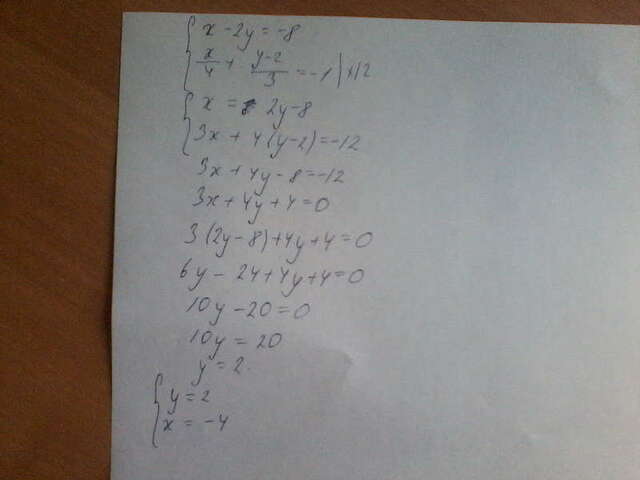 x - 2y = -8
x/4 + y-2/3 = -1 | ×12
x = 2y - 8
3x + 4(y-2) = -12
3x + 4y - 8 = -12
3x + 4y + 4 = 0
3(2y-8) + 4y + 4 = 0
6y - 24 + 4y + 4 = 0
10y - 20 = 0
10y = 20
y = 2.
y = 2
x = -4